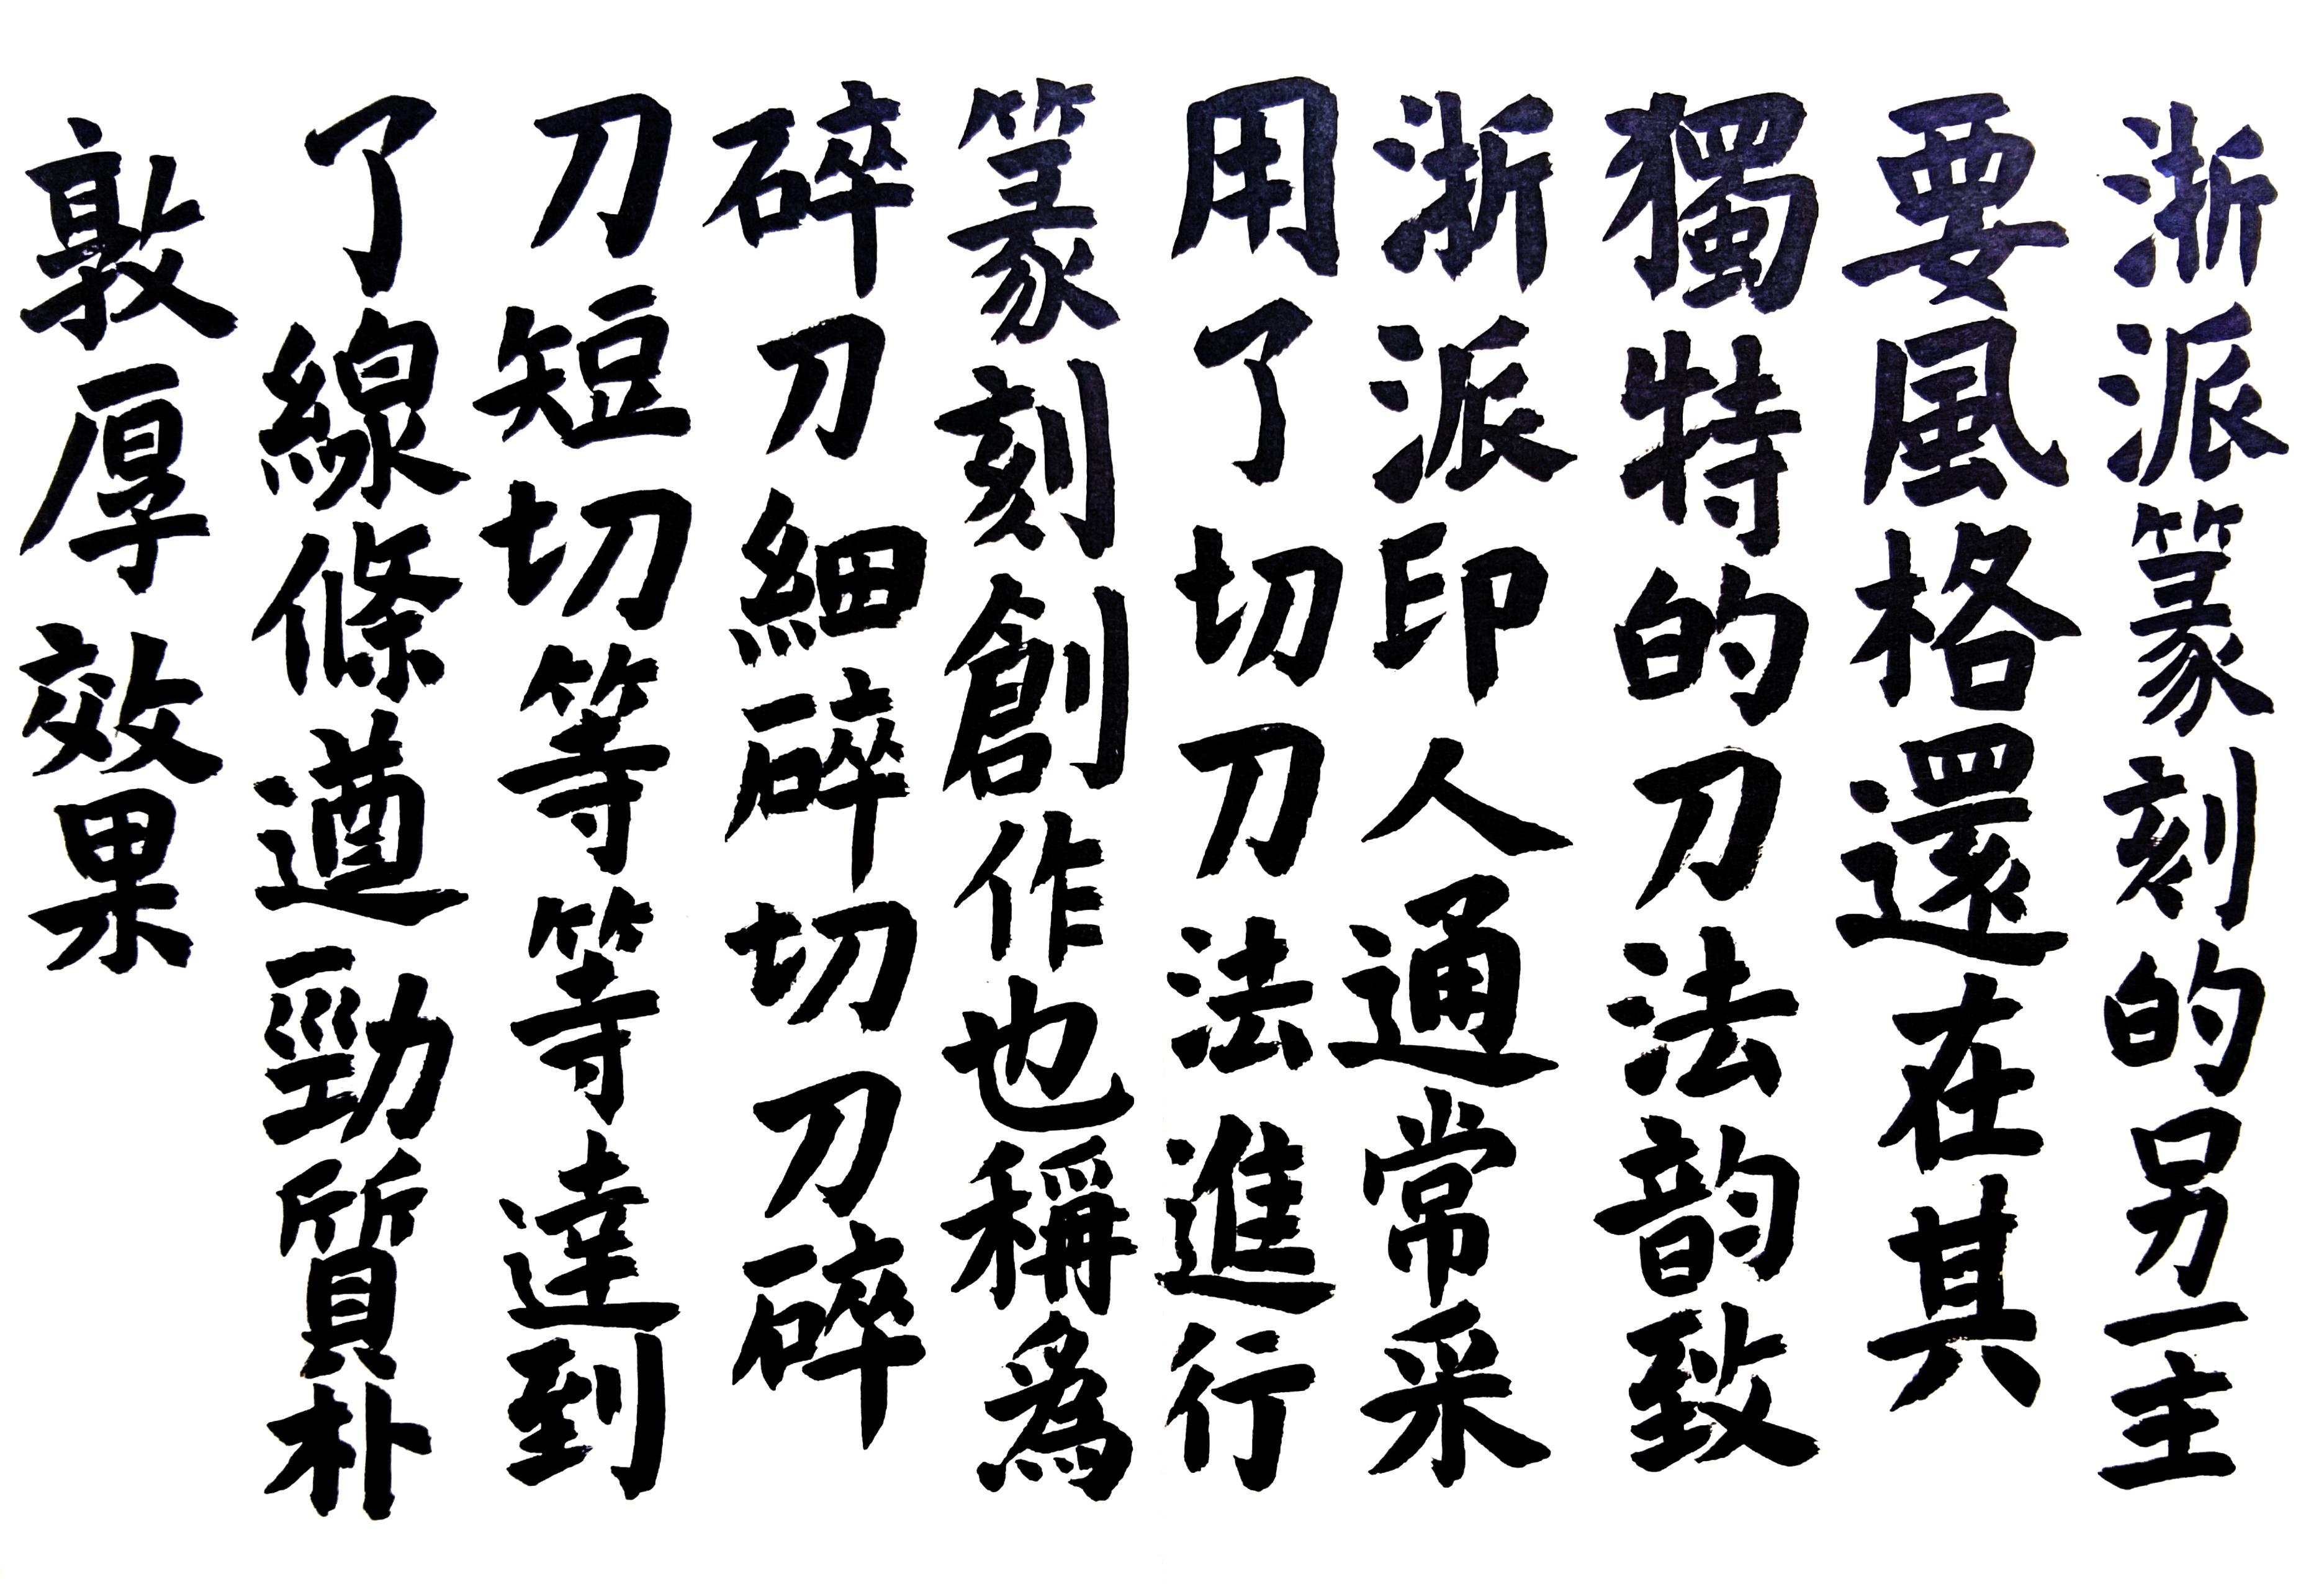 浙派篆刻的另一主
要風格還在其
獨特的刀法韵致
浙派印人通常采
用了切刀法進行
篆刻創作也稱為
碎刀細碎切刀碎
刀短切等等達到
了線條遒勁質朴
敦厚效果